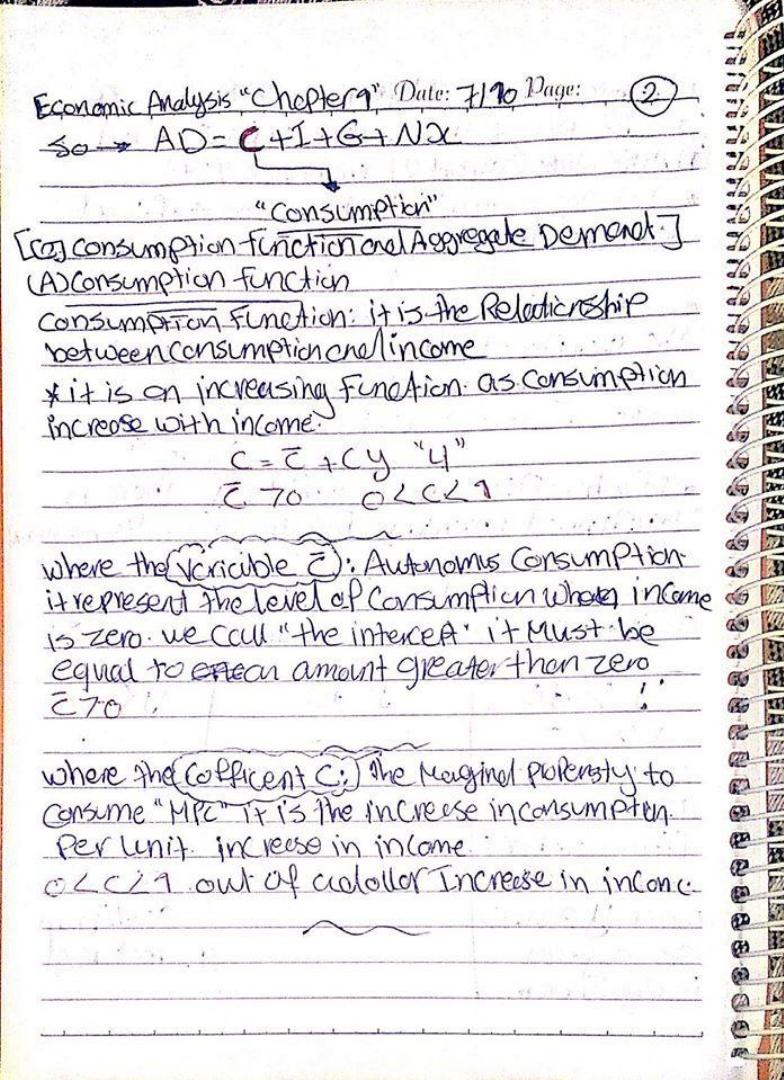 Economic Analysis "Chapter 9" Date: 7/10 Page: 2
So → AD = C + I + G + Nx
"Consumption"
[(2) Consumption function and Aggregate Demand.]
(A) Consumption function
Consumption Function: it is the Relationship
between consumption and income
* it is an increasing Function. as consumption
increase with income.
C = C̄ + cy "4"
C̄ > 0 0 < c < 1
where the (Variable C̄): Autonomus Consumption
it represent the level of Consumption when income
is zero. we call "the intercept" it Must be
equal to an amount greater than zero
C̄ > 0 .
where the (Cofficent C:) The Marginal propensty to
consume "MPC" it is the increase in consumption
Per unit increase in income
0 < c < 1 out of a dollar Increase in income.